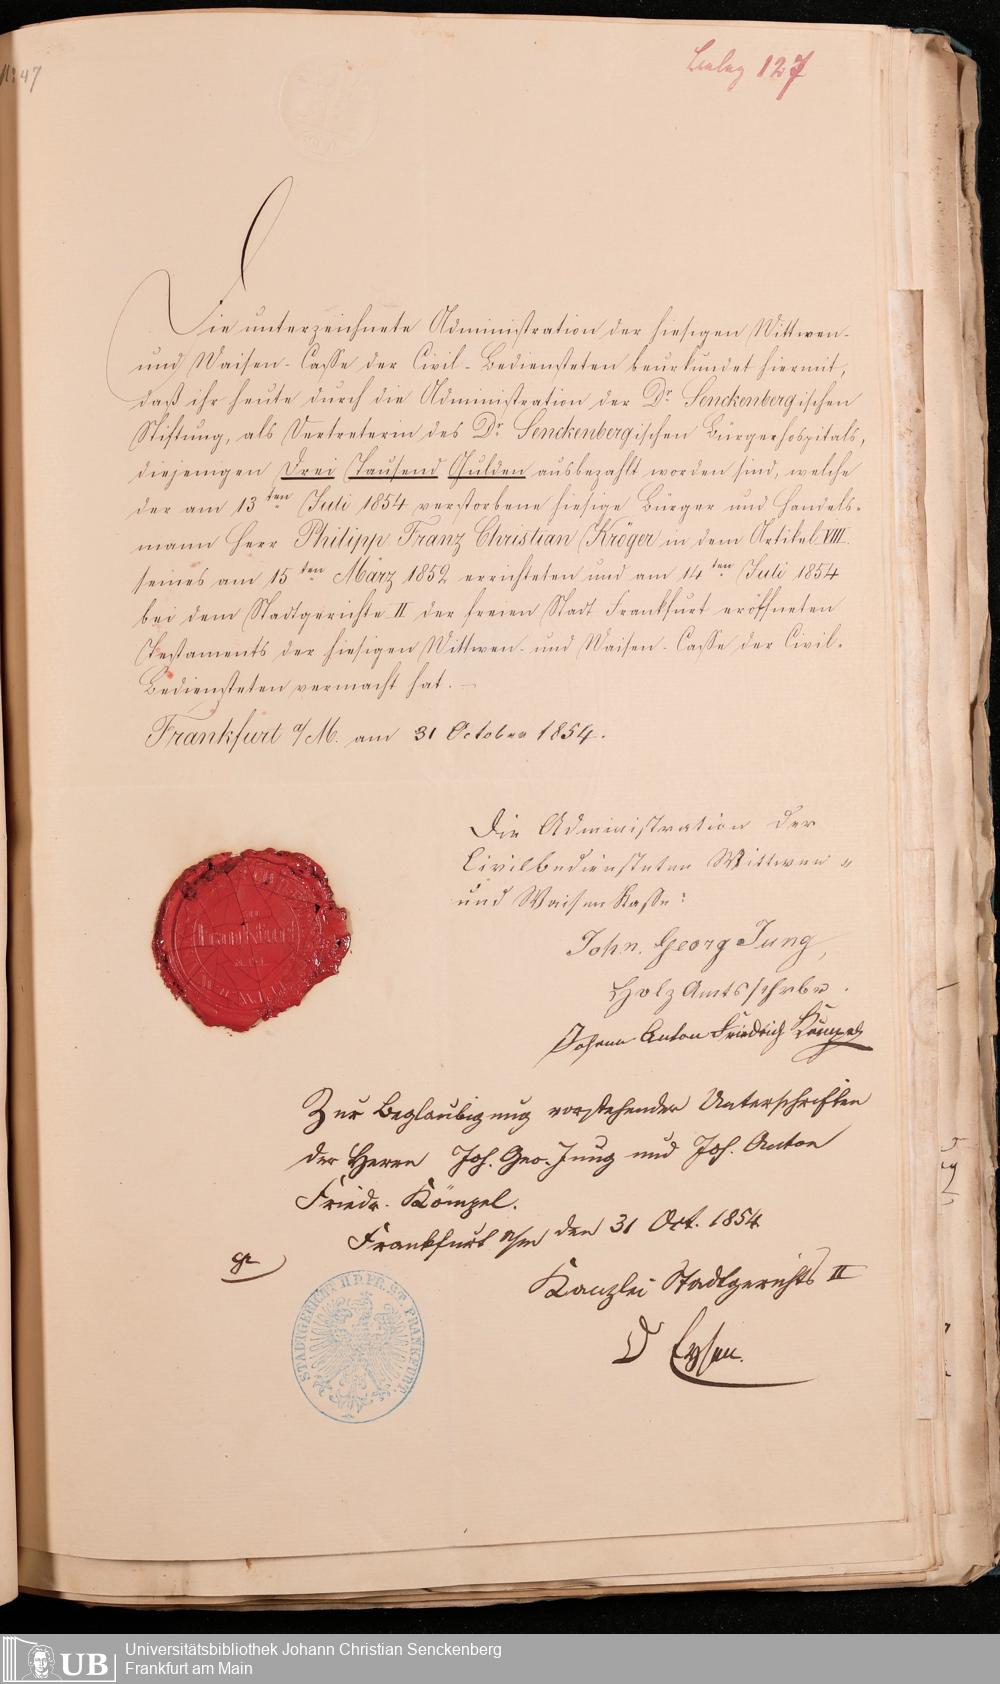 No 47
Beleg 127
Die unterzeichnete Administration der hiesigen Wittwen-
und Waisen-Casse der Civil-Bediensteten beurkundet hiermit,
daß ihr heute durch die Administration der Dr. Senckenbergischen
Stiftung, als Vertreterin des Dr. Senckenbergischen Bürgerhospitals,
diejenigen Drei Tausend Gulden ausbezahlt worden sind, welche
der am 13ten Juli 1854 verstorbene hiesige Bürger und Handels-
mann Herr Philipp Franz Christian Kröger in dem Artikel VIII
seines am 15ten März 1852 errichteten und am 14ten Juli 1854
bei dem Stadtgerichte II der freien Stadt Frankfurt eröffneten
Testaments der hiesigen Wittwen- und Waisen-Casse der Civil-
Bediensteten vermacht hat. —
Frankfurt a/M. am 31 October 1854.
Die Administration der
Civilbediensteten Wittwen-
und Waisen Kasse:
Frankfurt
Joh. Georg Jung,
Holz Amtsschrbr.
Johann Anton Friedrich Kömpel
Zur Beglaubigung vorstehender Unterschriften
der Herrn Joh. Geo. Jung und Joh. Anton
Friedr. Kömpel.
Frankfurt a/m den 31 Oct. 1854
Kanzlei Stadtgerichts II
STADTGERICHT II D. FR. ST. FRANKFURT.
D Eysen.
UB
Universitätsbibliothek Johann Christian Senckenberg
Frankfurt am Main